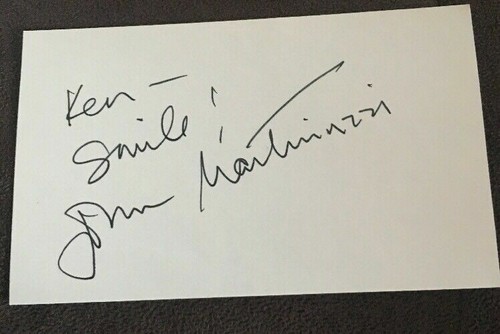 Ken —
Smile!
John Martinuzzi